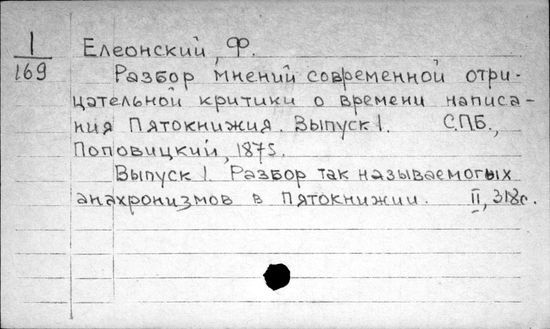 1
169
Елеонский, Ф.
Разбор мнений современной отри-
цательной критики о времени написа-
ния Пятокнижия. Выпуск 1. С.П.Б.,
Поповицкий, 1875.
Выпуск 1. Разбор так называемогых
анахронизмов в Пятокнижии. II, 318с.